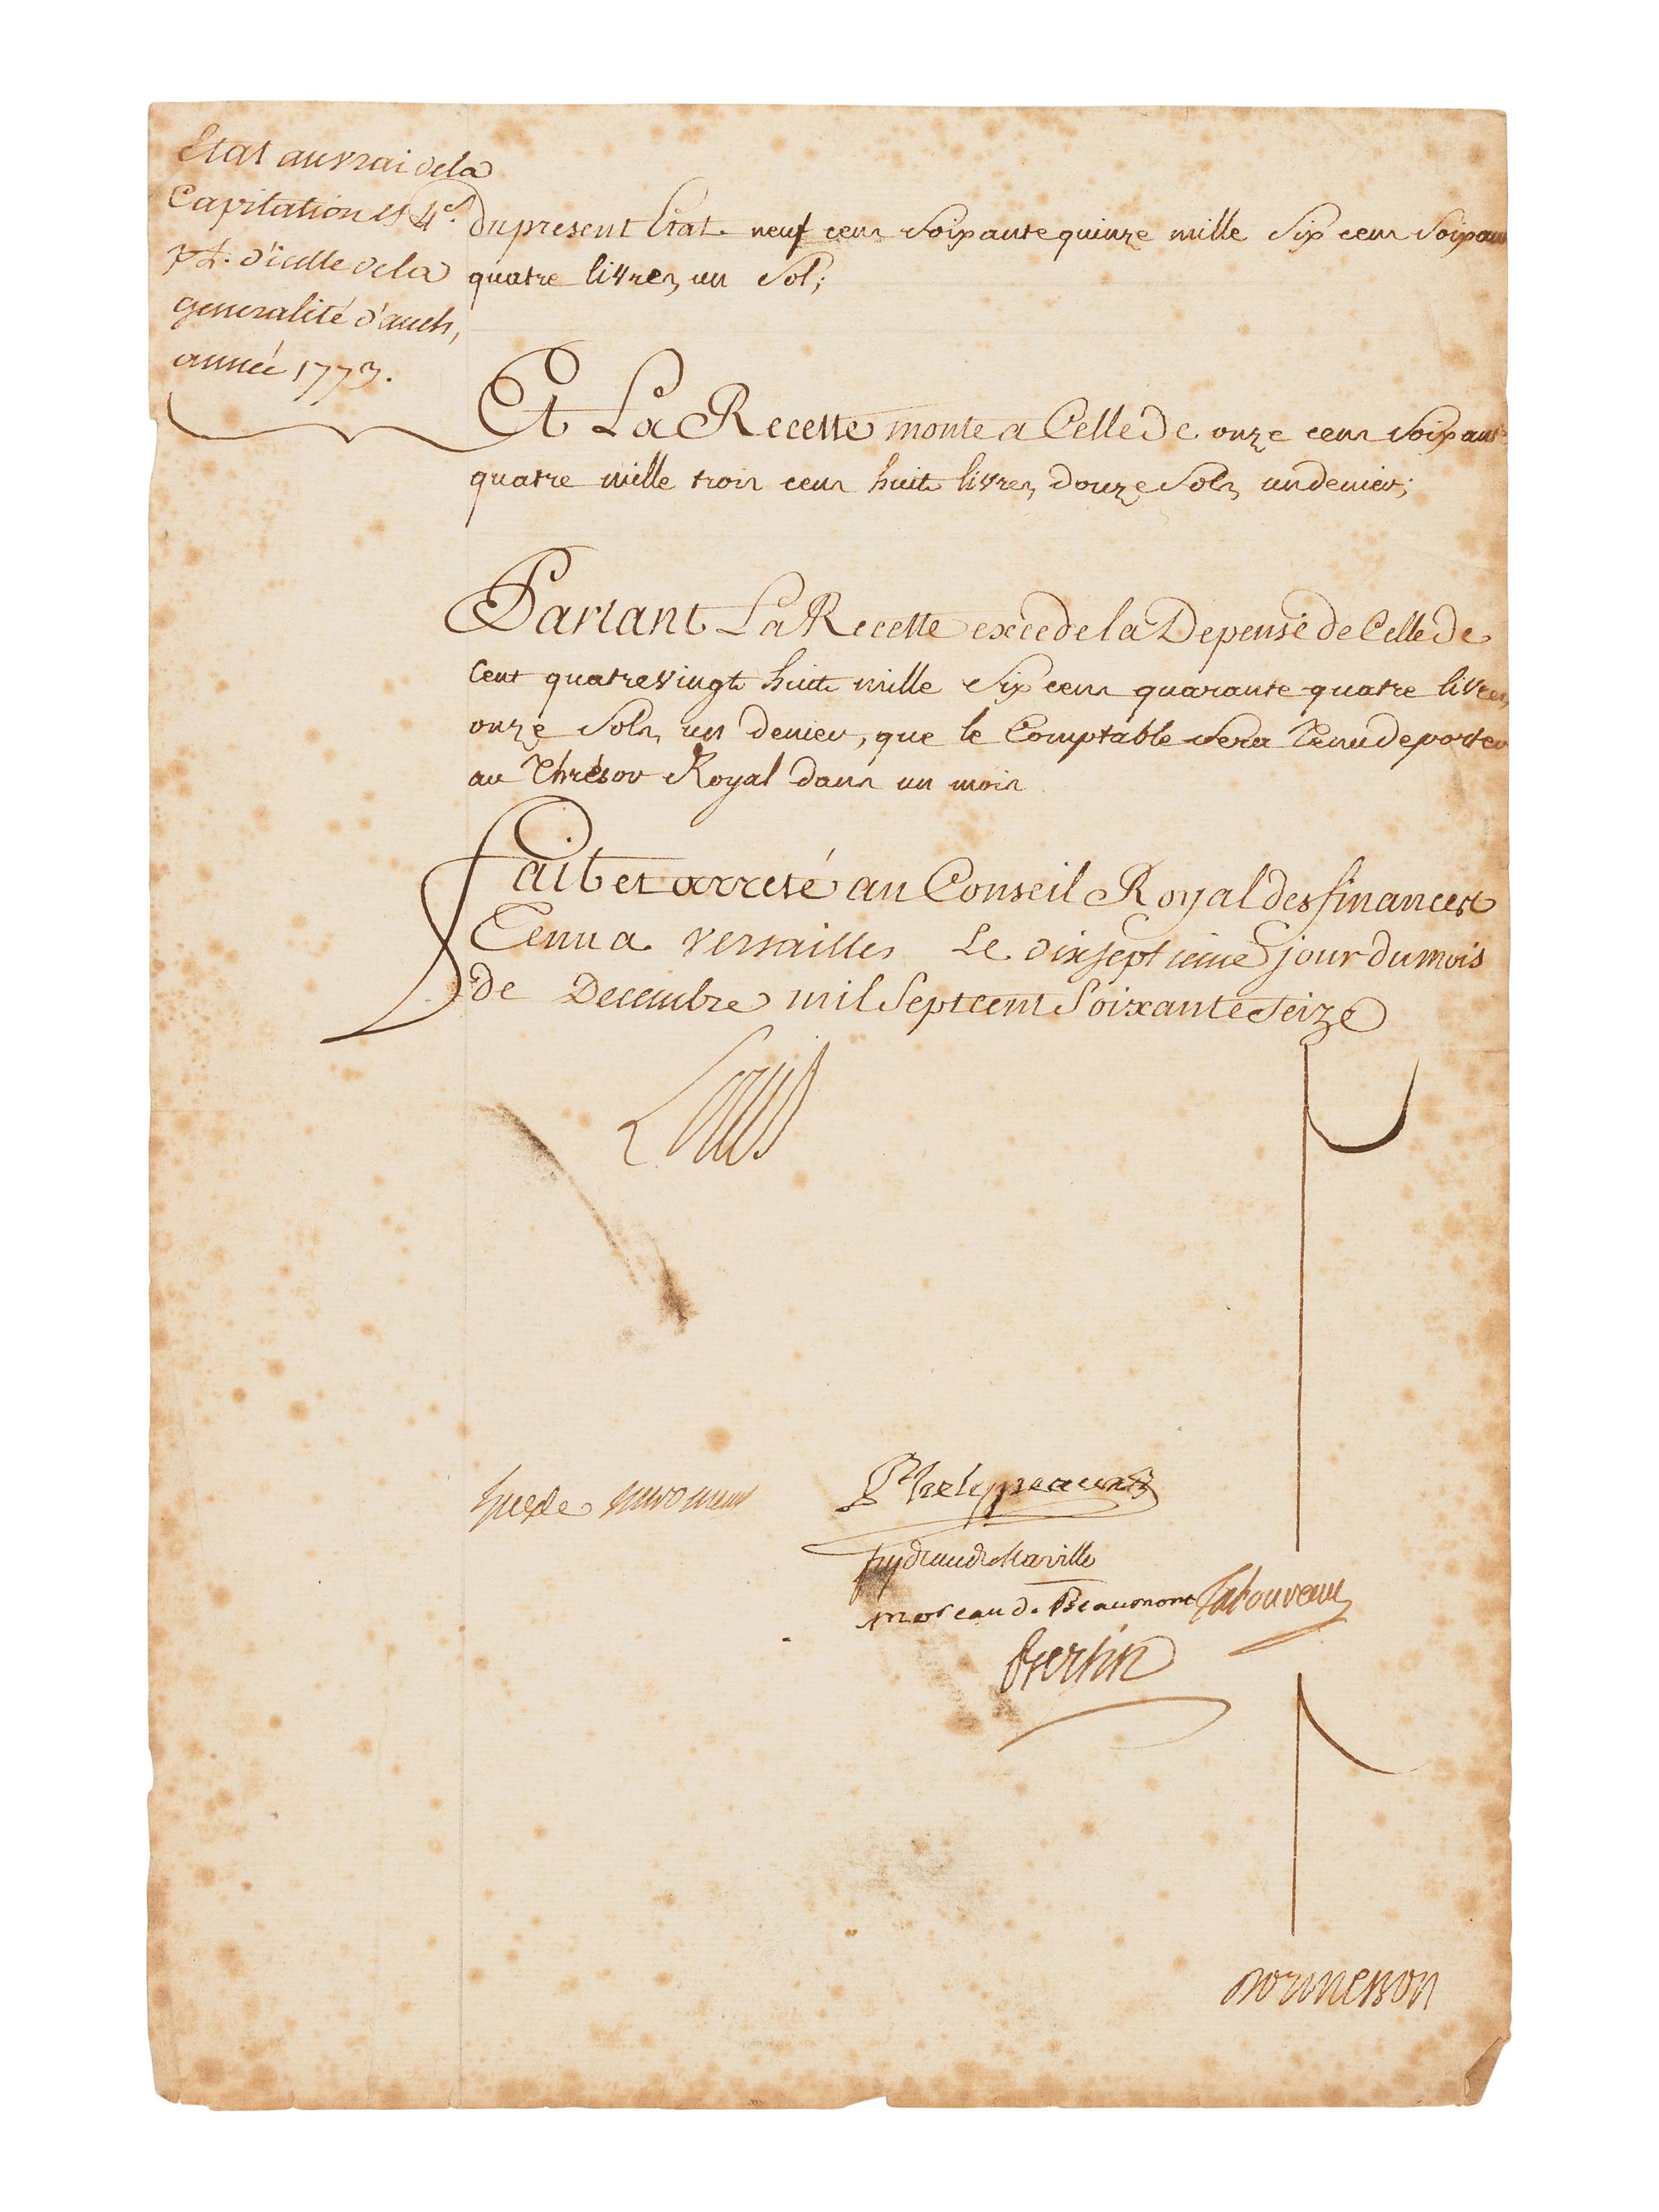 Etat au vrai de la
Capitation et 4e.
pt. d'icelle de la
generalité d'auch,
année 1773.
du present Etat neuf cens soixante quinze mille six cens soixan
quatre livres, un sol;
Et La Recette monte a Celle de onze cens soixante
quatre mille trois cens huit livres, douze sols, un denier;
Partant La Recette excede la Depense de Celle de
Cent quatre vingt huit mille six cens quarante quatre livres,
onze sols, un denier, que le Comptable sera tenu de porter
au Thrésor Royal dans un mois
fait et arreté au Conseil Royal des finances
Tenu a versailles Le dixseptieme jour du mois
de Decembre mil Sept cent Soixante Seize
Louis
hue de miromenil
Phelypeaux
feydeau de Marville
moreau de Beaumont Taboureau
Bertin
Dormesson